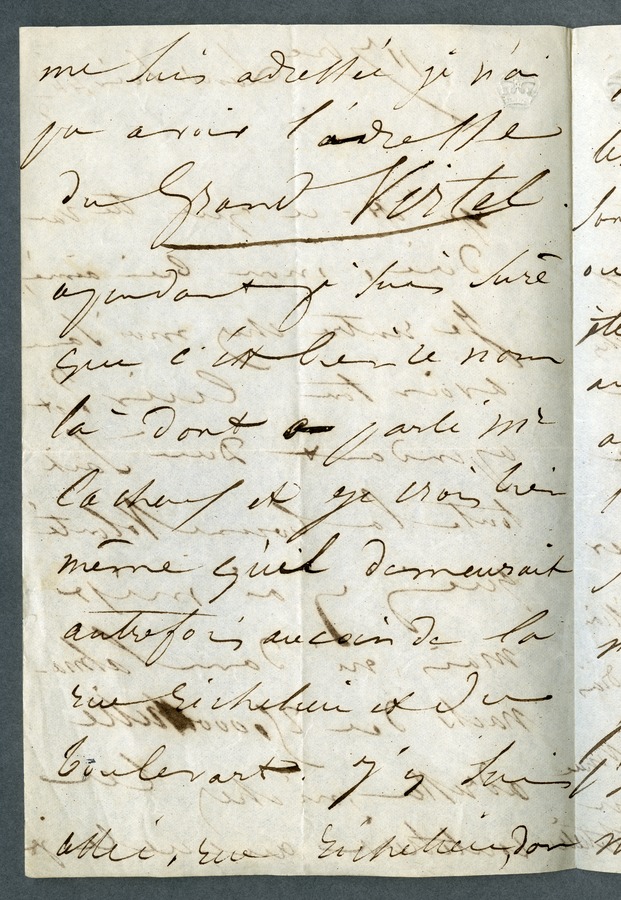 me suis adressée je n'ai
pu avoir l'adresse
du Grand Vertel.
cependant je suis sure
que c'est bien ce nom
là dont a parlé Mr
Lacheuf et je crois bien
même qu'il demeurait
autrefois au coin de la
rue Richelieu et du
boulevart. J'y suis
allée, rue Richelieu, don